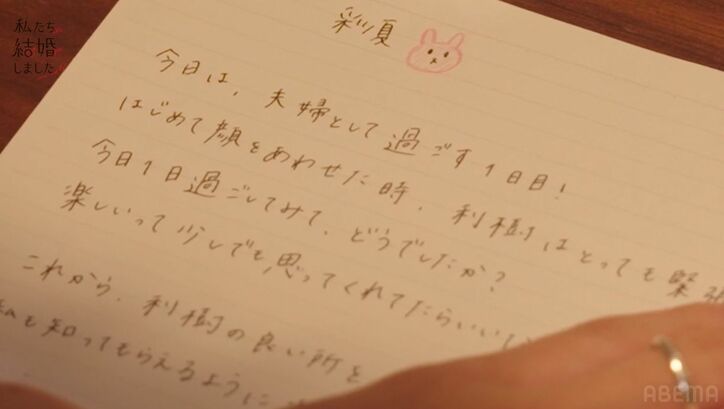 私たち
結婚
しました
彩夏
今日は、夫婦として過ごす1日目!
はじめて顔をあわせた時、利樹はとっても緊張
今日1日過ごしてみて、どうでしたか?
楽しいって少しでも思ってくれてたらいいし
これから、利樹の良い所を
私も知ってもらえるように
ABEMA